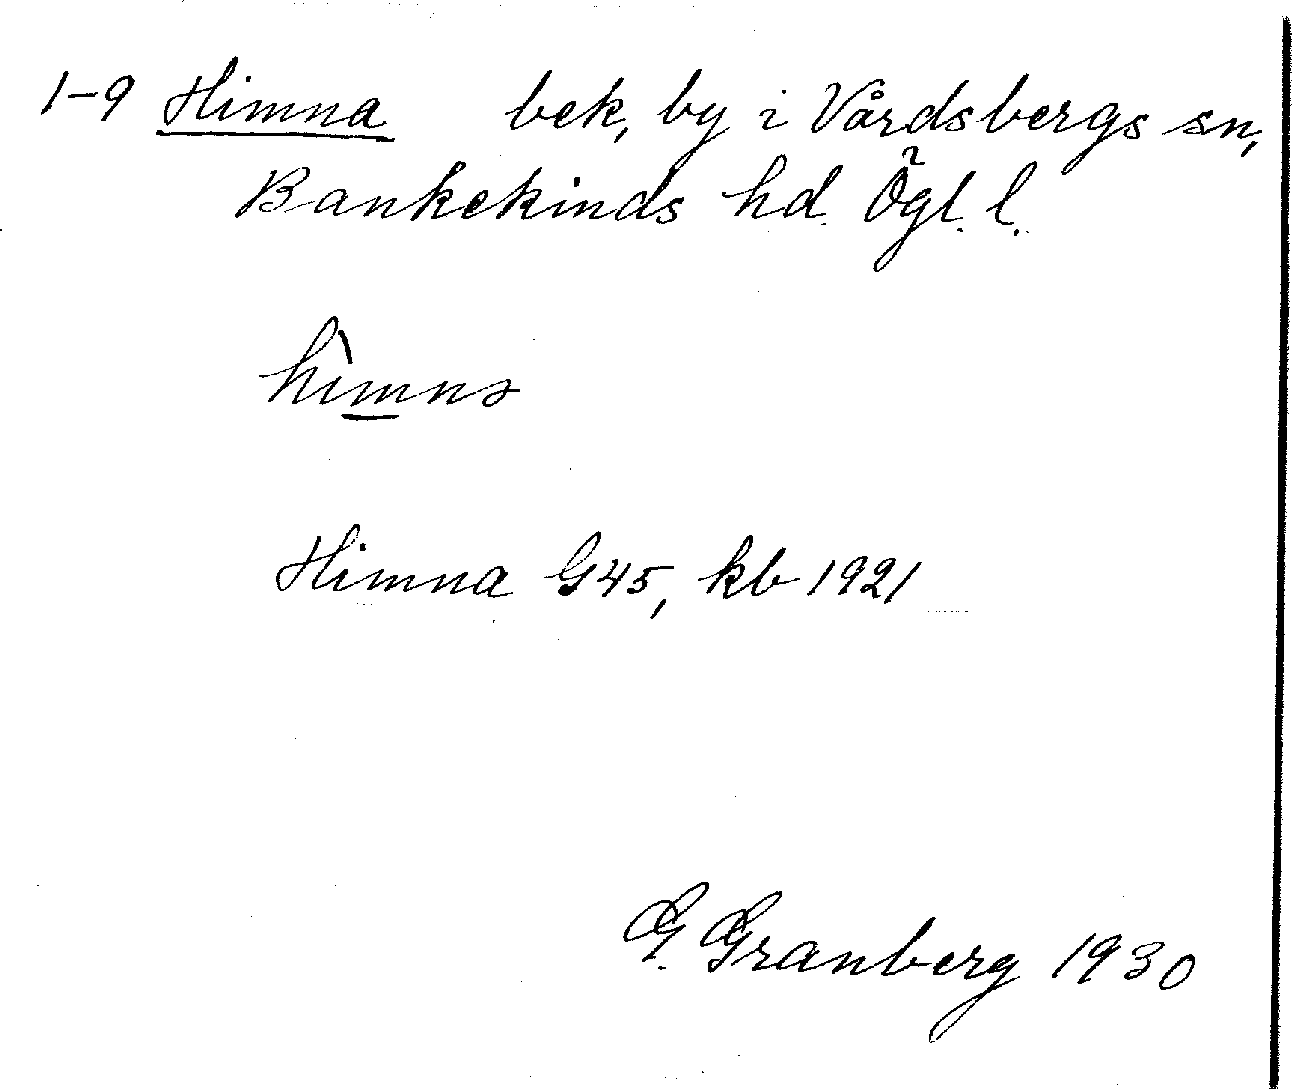 1-9 Himna bek, by i Vårdsbergs sn,
Bankekinds hd. Ögl. l.
hìmnə
Himna G45, kb 1921
G. Granberg 1930